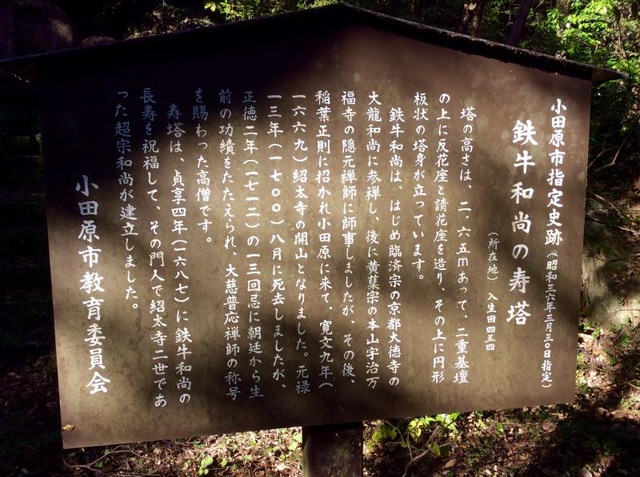 小田原市指定史跡（昭和三六年三月三〇日指定）
鉄牛和尚の寿塔
（所在地）入生田四五四
塔の高さは、二、六五mあって、二重基壇
の上に反花座と請花座を造り、その上に円形
板状の塔身が立っています。
鉄牛和尚は、はじめ臨済宗の京都大徳寺の
大龍和尚に参禅し、後に黄檗宗の本山宇治万
福寺の隠元禅師に師事しましたが、その後、
稲葉正則に招かれ小田原に来て、寛文九年（
一六六九）紹太寺の開山となりました。元禄
一三年（一七〇〇）八月に死去しましたが、
正徳二年（一七一二）の一三回忌に朝廷から生
前の功績をたたえられ、大慈普応禅師の称号
を賜わった高僧です。
寿塔は、貞享四年（一六八七）に鉄牛和尚の
長寿を祝福して、その門人で紹太寺二世であ
った超宗和尚が建立しました。
小田原市教育委員会